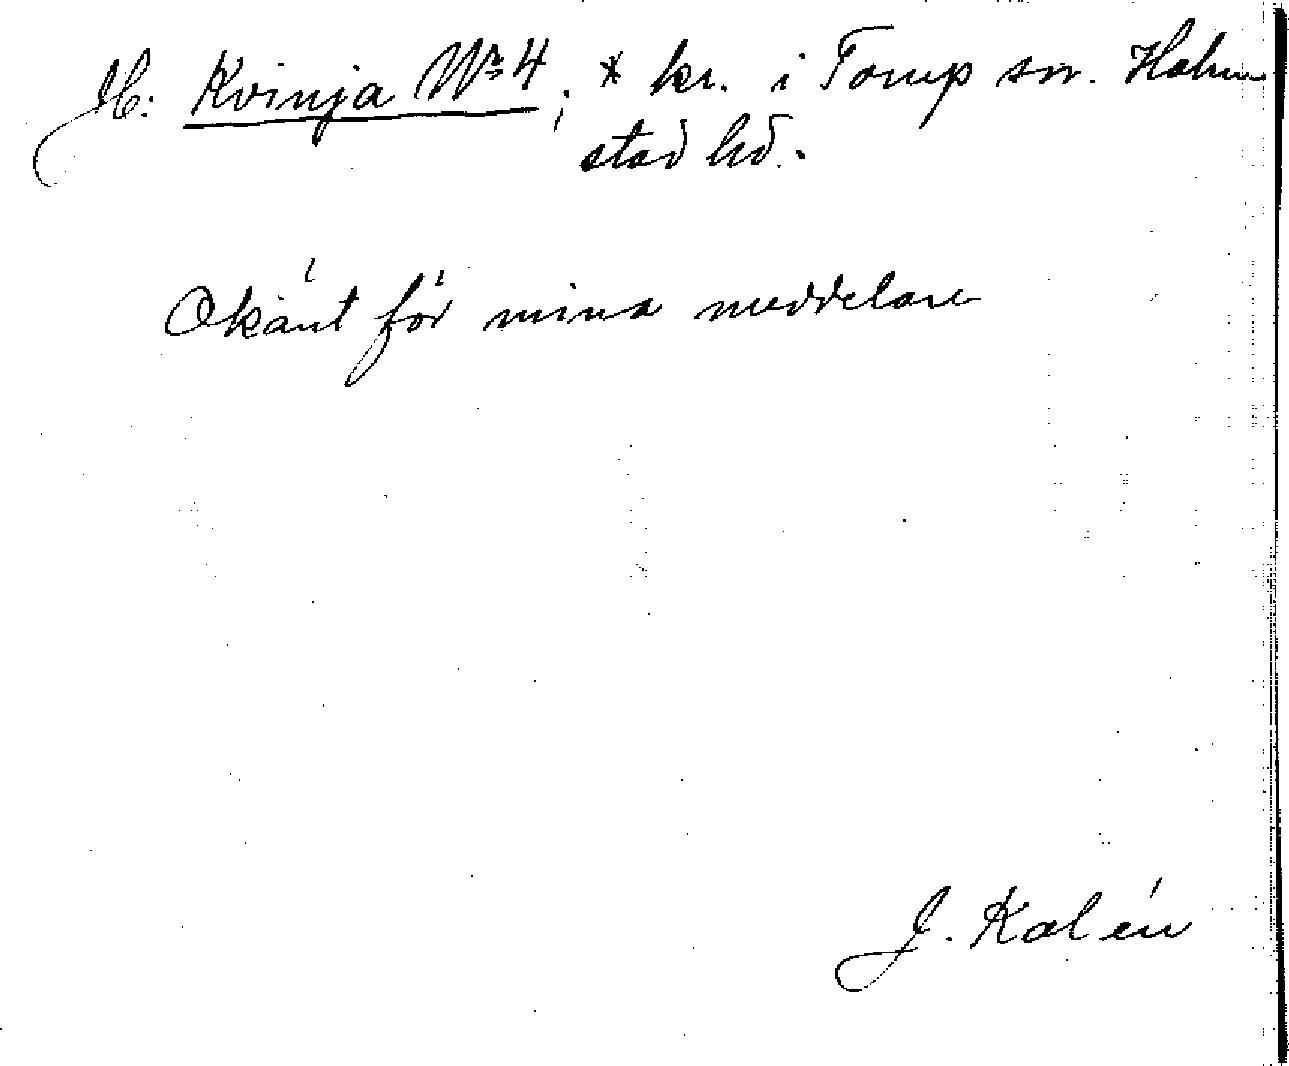 H: Kvinja Nr 4; * kr. i Torup sn. Halm
stad hd.
Okänt för mina meddelare
J. Kalén